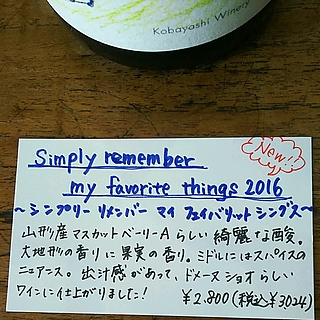 Kobayashi Winery
New!!
Simply remember
my favorite things 2016
〜シンプリー リメンバー マイ フェイバリット シングス〜
山形産マスカットベーリーAらしい綺麗な酸。
大地形の香りに果実の香り。ミドルにはスパイスの
ニュアンス。出汁感があって、ドメーヌ ショオらしい
ワインに仕上がりました! ¥2,800(税込¥3024)